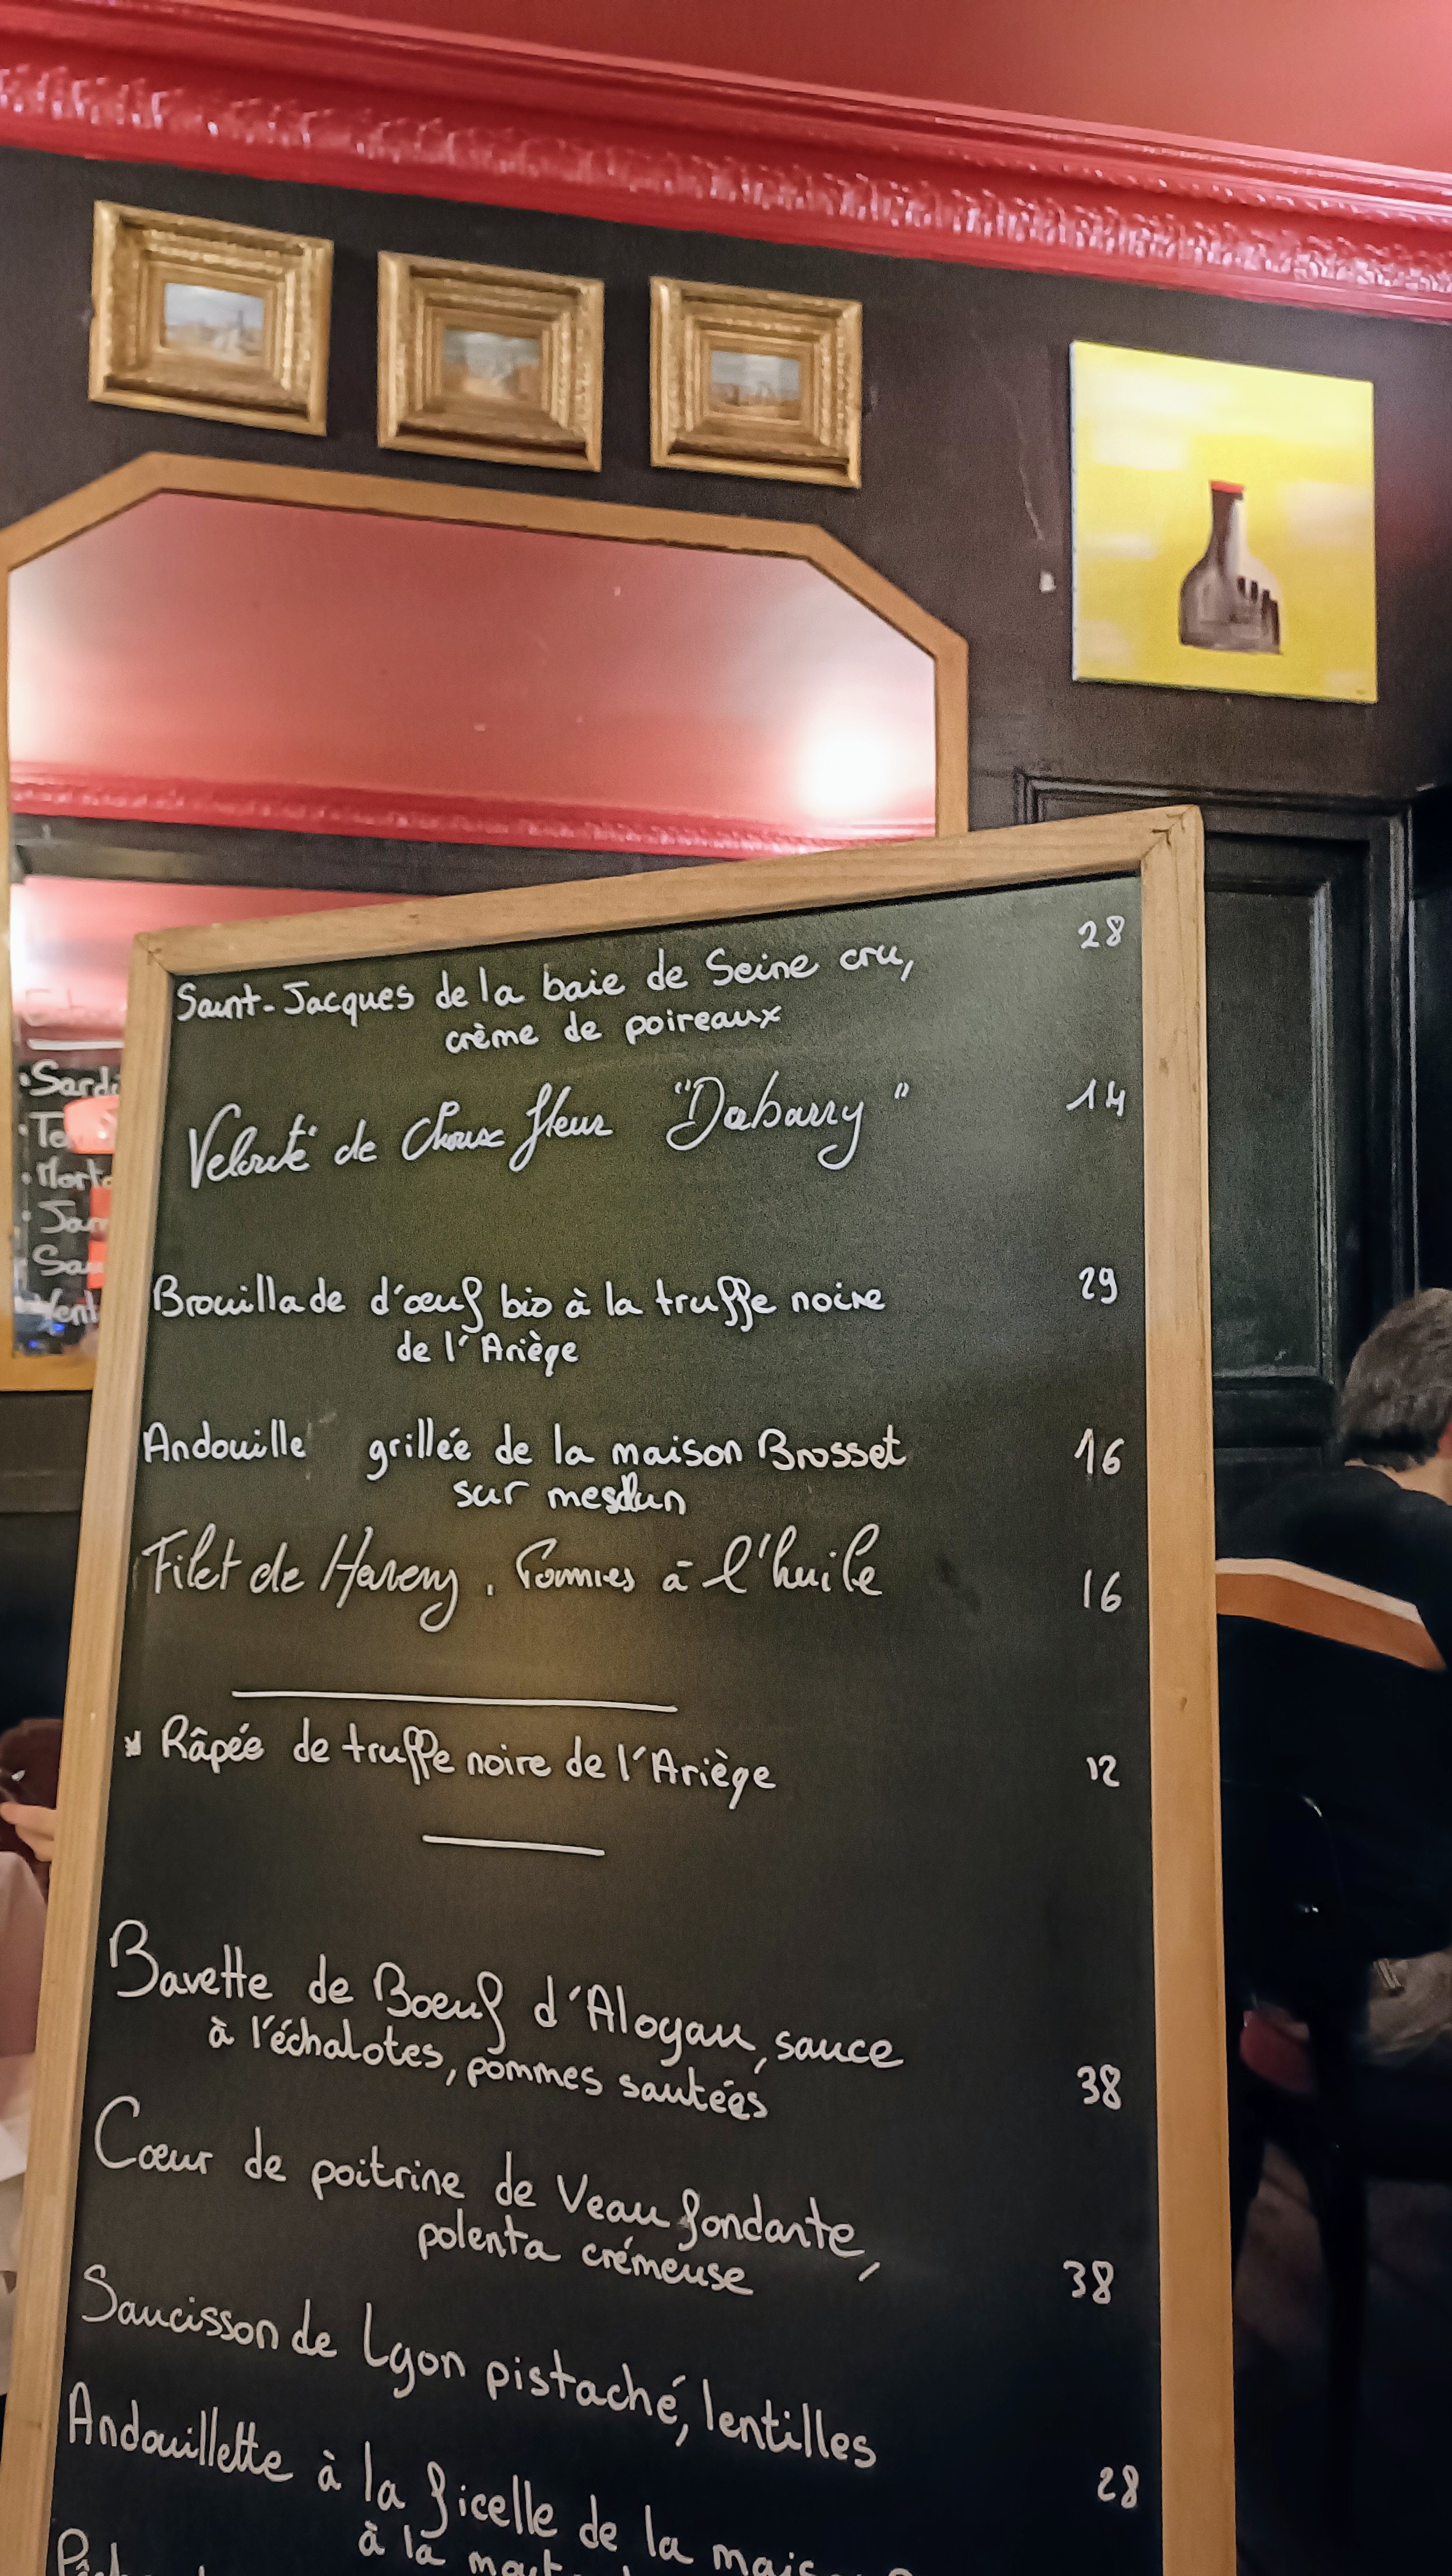 Saint-Jacques de la baie de Seine cru, 28
crème de poireaux
Velouté de Choux fleur "Dubarry" 14
Brouillade d'œuf bio à la truffe noire 29
de l'Ariège
Andouille grillée de la maison Brosset 16
sur mesclun
Filet de Hareng, Pommes à l'huile 16
Râpée de truffe noire de l'Ariège 12
Bavette de Boeuf d'Aloyau, sauce
à l'échalotes, pommes sautées 38
Cœur de poitrine de Veau fondante,
polenta crémeuse 38
Saucisson de Lyon pistaché, lentilles
28
Andouillette à la ficelle de la
à la